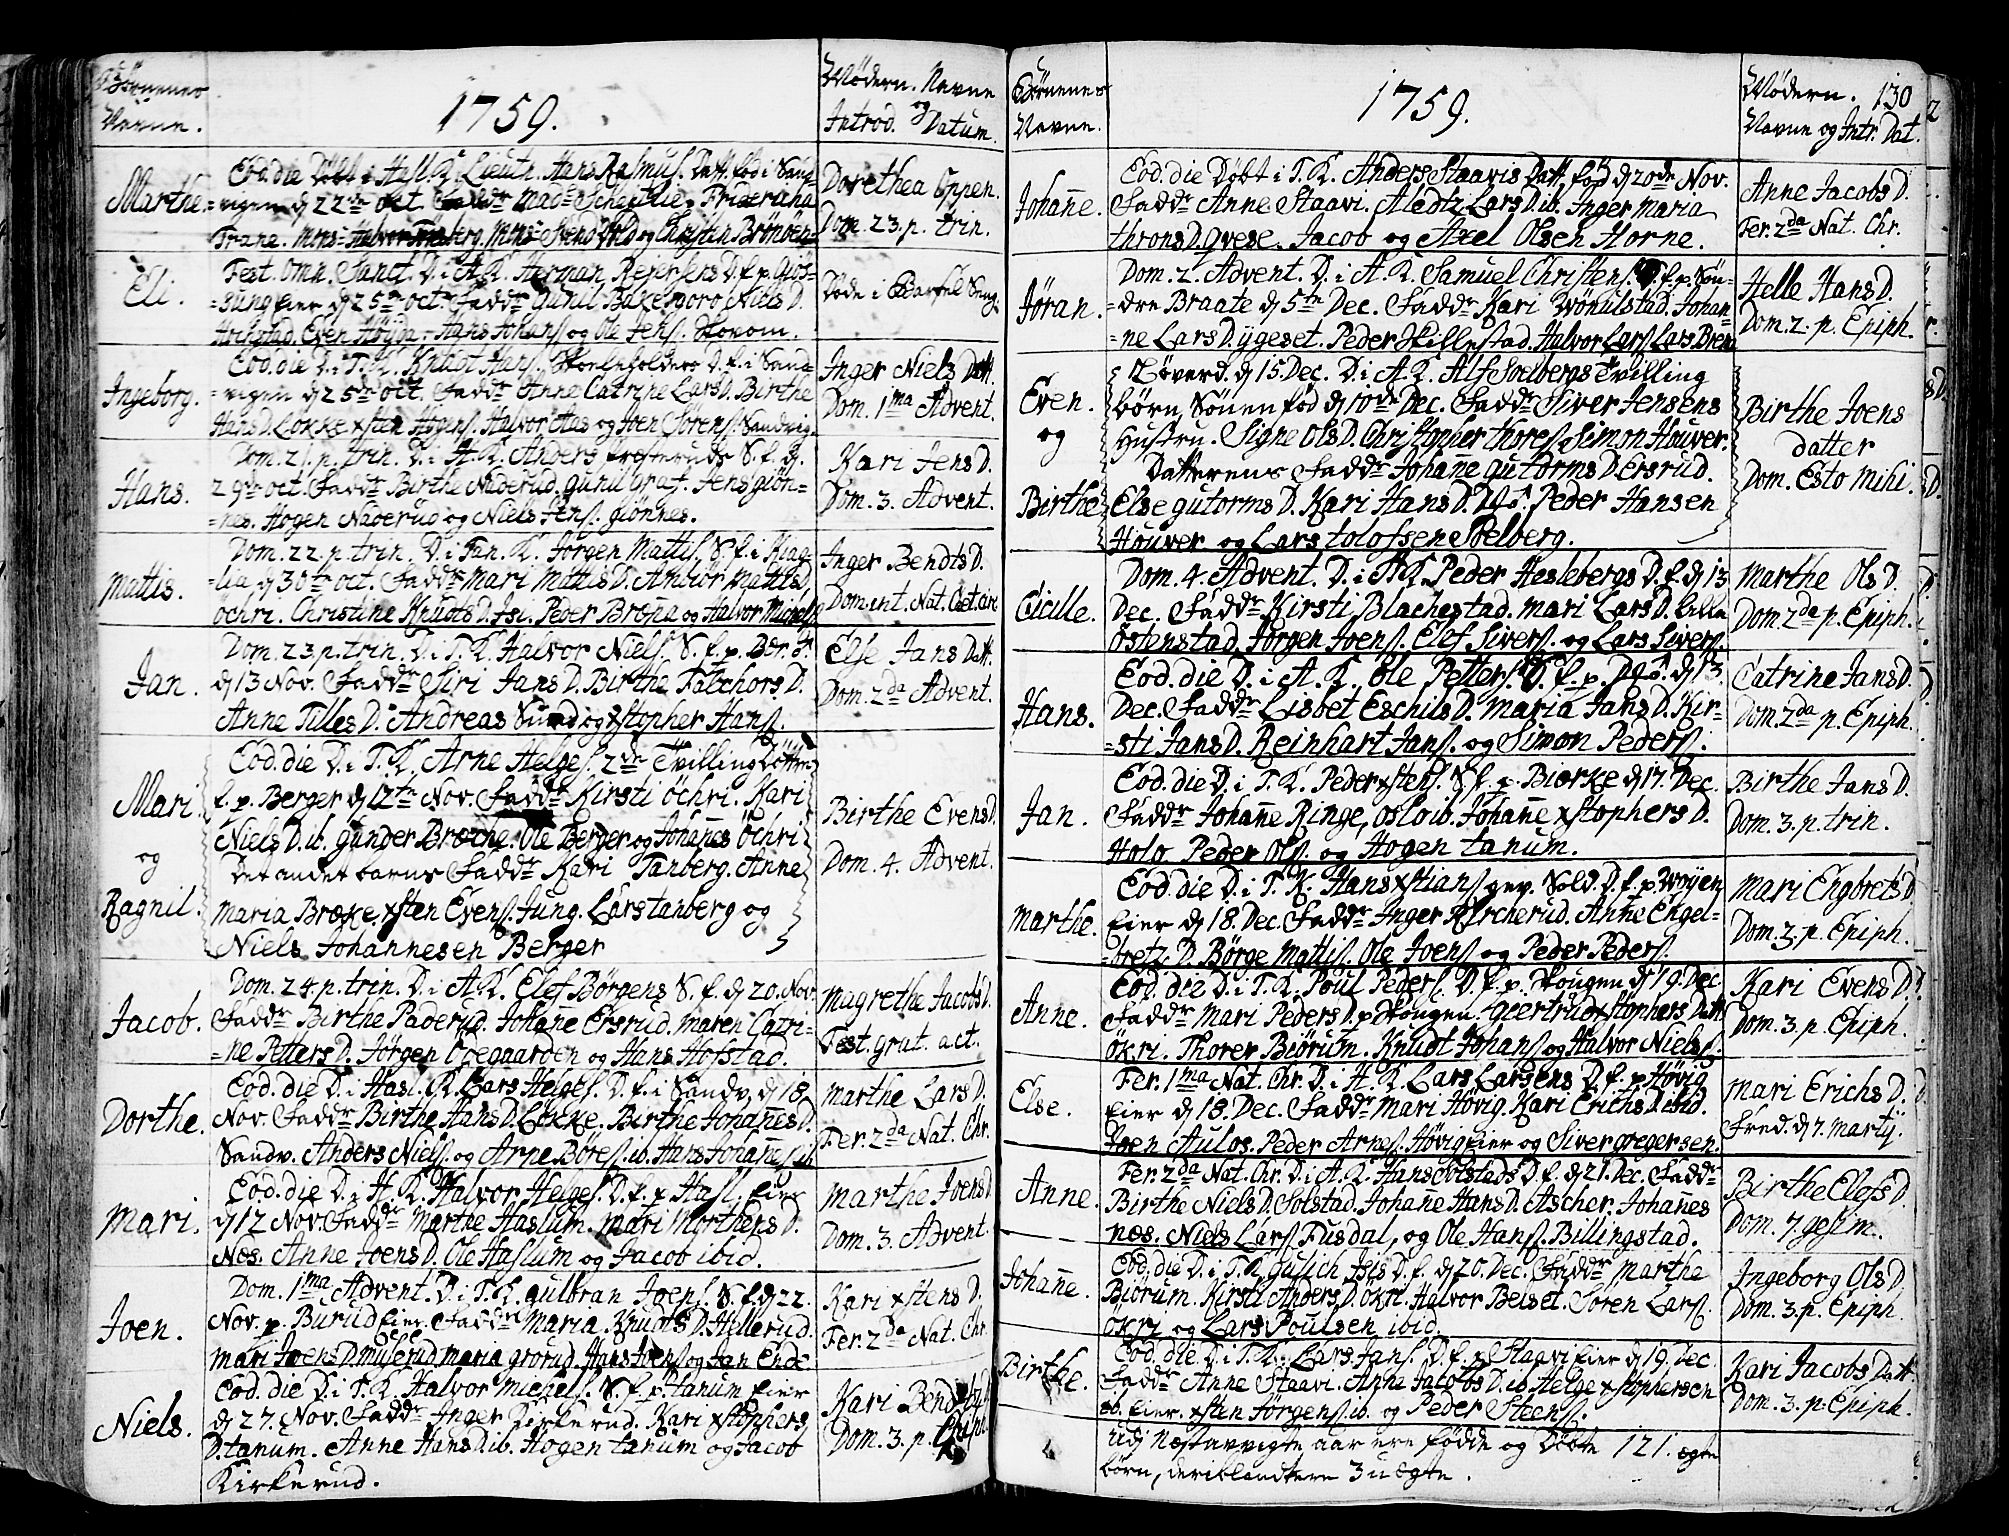 Børnenes
Navne.
1759.
Mødern. Navne
Introd. og Datum.
Marthe
Eod. die Døbt i Hasl. K. Lieutn. Hans Rasmus. Datt. fød i Sand-
=vigen d 22de Oct. Faddr Mad. Fridericha
Trane. og Christen
Dorethea Oppen.
Dom. 23. p. trin.
Eli.
Fest. Omn. Sanct. D. i A. K. Herman Rejersens D. f. p. Giøs-
=sung Eier d 25de Oct. Faddr Gunil Niels D.
Hofstad. Even Høyda. Hans Johans. og Ole Jens. Skovom.
Døde i Barsel Seng.
Ingeborg.
Eod. die D. i T. K. Knudt Hans. Skoeleholders D. f. i Sand-
=vigen d 25de Oct. Faddr Anne Catrine Lars D. Birthe
Hans D. Løkke Xsten Hogens. Halvor Aas og Joen Sørens. Sandvig.
Inger Niels Datt.
Dom. 1ma Advent.
Hans.
Dom. 21. p. trin. D. i A. K. Anders S. f. d.
29de Oct. Faddr Birthe Naderud. Gunil Graf. Jens Giøn-
=nes. Hogen Naderud og Niels Jens. Giønnes.
Kari Jens D.
Dom. 3. Advent.
Mattis.
Dom. 22. p. trin. D. i Tan. K. Jørgen Mattis. S. f. i Kiag-
=lia d 30te Oct. Faddr Mari Mattis D. Ambiør Mattis D.
Ochri. Christine Knudts D. Isi. Peder Broma og Halvor Michels.
Inger Bendts D.
Dom. int. Nat. et Circ.
Jan.
Dom. 23. p. trin. D. i T. K. Halvor Niels. S. f. p.
d 13 Nov. Faddr Siri Jans D. Birthe Talchors D.
Anne Tilles D. Andreas Sund og Xstopher Hans.
Else Jans Datt.
Dom. 2da Advent.
Mari
og
Ragnil.
Eod. die D. i T. K. Arne Helges. 2de Tvilling Døttre
f. p. Berger d 12te Nov. Faddr Kirsti Ochri. Kari
Niels D. ib. Gunder Brache. Ole Berger og Johannes Ochri
Det andet barns Faddr Kari Tanberg. Anne
Maria Bræke. Xsten Evens. Jung. Lars Tanberg og
Niels Johannesen Berger
Birthe Evens D.
Dom. 4. Advent.
Jacob.
Dom. 24. p. trin. D. i A. K. Elef Børgens S. f. d 20. Nov.
Faddr Birthe Paderud. Johanne Ersrud. Maren Catri-
=ne Petters D. Jørgen Odegaarden og Hans Hofstad.
Magrethe Jacobs D.
Fest. grat. act.
Dorthe.
Eod. die D. i Hasl. K. Lars Helges. D. f. i Sandv. d 18
Nov. Faddr Birthe Hans D. Løkke. Birthe Johannes D.
Sandv. Anders Niels. og Arne Børes. ib. Hans Johannes. ib.
Marthe Lars D.
Fer. 2da Nat. Chr.
Mari.
Eod. die D. i H. K. Halvor Helges. D. f. p. Hasl. Eier
d 12 Nov. Faddr Marthe Haslum. Mari Morthens D.
Næs. Anne Joens D. Ole Haslum og Jacob ibid.
Marthe Joens D.
Dom. 3. Advent.
Joen.
Dom. 1ma Advent. D. i T. K. Gulbran Joens. S. f. d 22
Nov. p. Burud Eier. Faddr Maria Knudts D. Hillerud.
Mari Joens D. Muserud, Maria Grorud. Hans Joens. og Jan Ende
Kari Xstens D.
Fer. 2da Nat. Chr.
Niels.
Eod. die D. i T. K. Halvor Michels. S. f. p. Tanum Eier
d 27. Nov. Faddr Inger Kirkerud. Kari Xstophers
D. Tanum. Anne Hans D. ib. Hogen Tanum og Jacob
Kirkerud.
Kari Bendts D.
Dom. 3. p. Epiph.
Børnenes
Navne.
1759.
Mødern. 130
Navne og Intr. Dat.
Johanne.
Eod. die Døbt i T. K. Anders Staavis Datt. fød d 20de Nov.
Faddr Anne Staavi. Aledtz Lars D. ib. Inger Maria
Throns D. Qvese. Jacob og Axel Olsen Horne.
Anne Jacobs D.
Fer. 2da Nat. Chr.
Jøran.
Dom. 2. Advent. D. i A. K. Samuel Christens. D. f. p. Søn-
=dre Braate d 5te Dec. Faddr Kari Wønulstad. Johan-
=ne Lars D. Ygeset. Peder Skillestad. Halvor Lars. Lars Brena
Helle Hans D.
Dom. 2. p. Epiph.
Even
og
Birthe
Løverd. d 15. Dec. D. i A. K. Alf Soelbergs Tvilling
børn, Sønen fød d 10de Dec. Faddr Siver Jensens
Hustru. Signe Ols D. Christopher Thores. Simon Houver.
Datterens Faddr Johanne Gutorms D. Ersrud.
Else Gutorms D. Kari Hans D. Peder Hansen
Houver og Lars Tolofsen Soelberg.
Birthe Joens
datter
Dom. Esto Mihi.
Cicille.
Dom. 4. Advent. D. i A. K. Peder Heslebergs D. f. d 13
Dec. Faddr Kirsti Blachestad. Mari Lars D.
Østenstad. Jørgen Joens. Elef Sivers. og Lars Sivers.
Marthe Ols D.
Dom 2da p. Epiph.
Hans.
Eod. die D. i A. K. Ole Petters. S. f. p. d 13
Dec. Faddr Lisbet Eschils D. Maria Jans D. Kir-
=sti Jans D. Reinhart Jans. og Simon Peders.
Catrine Jans D.
Dom. 2da p. Epiph.
Jan.
Eod. die D. i T. K. Peder Xstens. S. f. p. Biørke d 17. Dec.
Faddr Johanne Ringe, Oslo ib. Johanne Xstophers D.
Holo Peder Ols. og Hogen Tanum.
Birthe Jans D.
Dom. 3. p. trin.
Marthe.
Eod. die D. i T. K. Hans Xstians. gev. Sold. D. f. p. Wøyen
Eier d 18. Dec. Faddr Inger Kircherud. Anne Engel-
=bretz D. Børge Mattis. Ole Joens. og Peder Peders.
Mari Engbrets D
Dom. 3. p. Epiph.
Anne.
Eod. die D. i T. K. Poul Peders. D. f. p. Skougen d 19. Dec.
Faddr Mari Peders D. p. Skougen. Giertrud Xstophers Datt.
Økri. Thorer Biørum. Knudt Johans. og Halvor Niels.
Kari Evens D.
Dom. 3. p. Epiph.
Else.
Fer. 1ma Nat. Chr. D. i H. K. Lars Larsens D. f. p. Høvig
Eier d 18. Dec. Faddr Mari Høvig. Kari Erichs D. ibid.
Joen Aulos. Peder Arnes. Høvig Eier og Siver Gregersen.
Mari Erichs D.
Fred. d 7. Martij.
Anne.
Fer. 2da Nat. Chr. D. i A. K. Hans Solsteds D. f. d 21. Dec. Faddr
Birthe Niels D. Solstad. Johane Hans D. Ascher. Johannes
Næs. Niels Lars. Fusdal, og Ole Hans. Billingstad.
Birthe Elefs D.
Dom. 7. gesim.
Johanne.
Eod. die D. i T. K. Gulich Isis D. f. d 20. Dec. Faddr Marthe
Biørum. Kirsti Anders D. Økri. Halvor Belset. Søren Lars.
Økri og Lars Poulsen ibid.
Ingeborg Ols D.
Dom. 3. p. Epiph.
Birthe.
Eod. die D. i T. K. Lars Jans. D. f. p. Staavi Eier d 19. Dec.
Faddr Anne Staavi. Anne Jacobs D. ib. Helge Xstophersen
ib. Eier. Xsten Jørgens. ib. og Peder Steens.
Kari Jacobs Datt
Dom. 3. p. Epiph.
Udj Næstavvigte aar ere fødde og Døbte 121. ægte
børn, deriblandt ere 3 uægte.